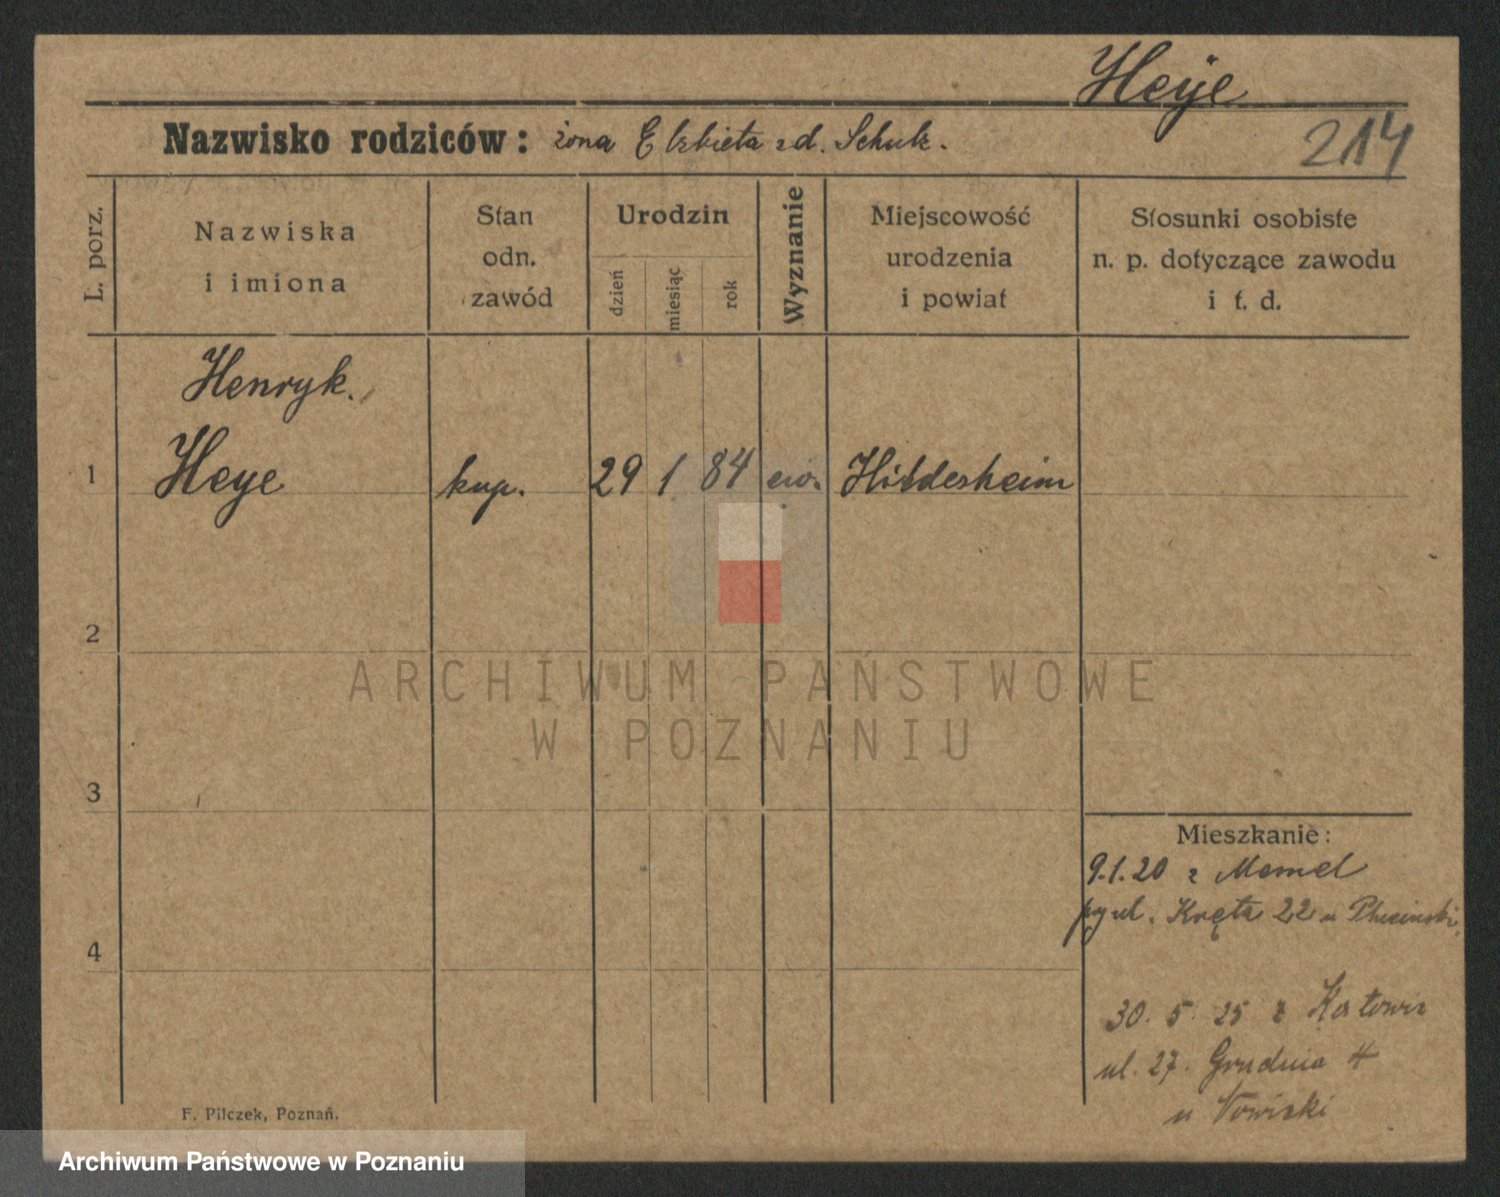 Heye
214
Nazwisko rodziców: żona Elżbieta zd. Schulz.
L. porz.
Nazwiska
i imiona
Stan
odn.
zawód
Urodzin
dzień
miesiąc
rok
Wyznanie
Miejscowość
urodzenia
i powiat
Stosunki osobiste
n. p. dotyczące zawodu
i t. d.
Henryk.
1 Heye kup. 29 1 84 ew. Hildesheim
2
ARCHIWUM PAŃSTWOWE
W POZNANIU
3
Mieszkanie:
9.1.20 z Memel
ul. Kręta 22 u
4
30. 5. 25 z Katowic
ul. 27. Grudnia 4
u Nowicki
F. Pilczek, Poznań.
Archiwum Państwowe w Poznaniu